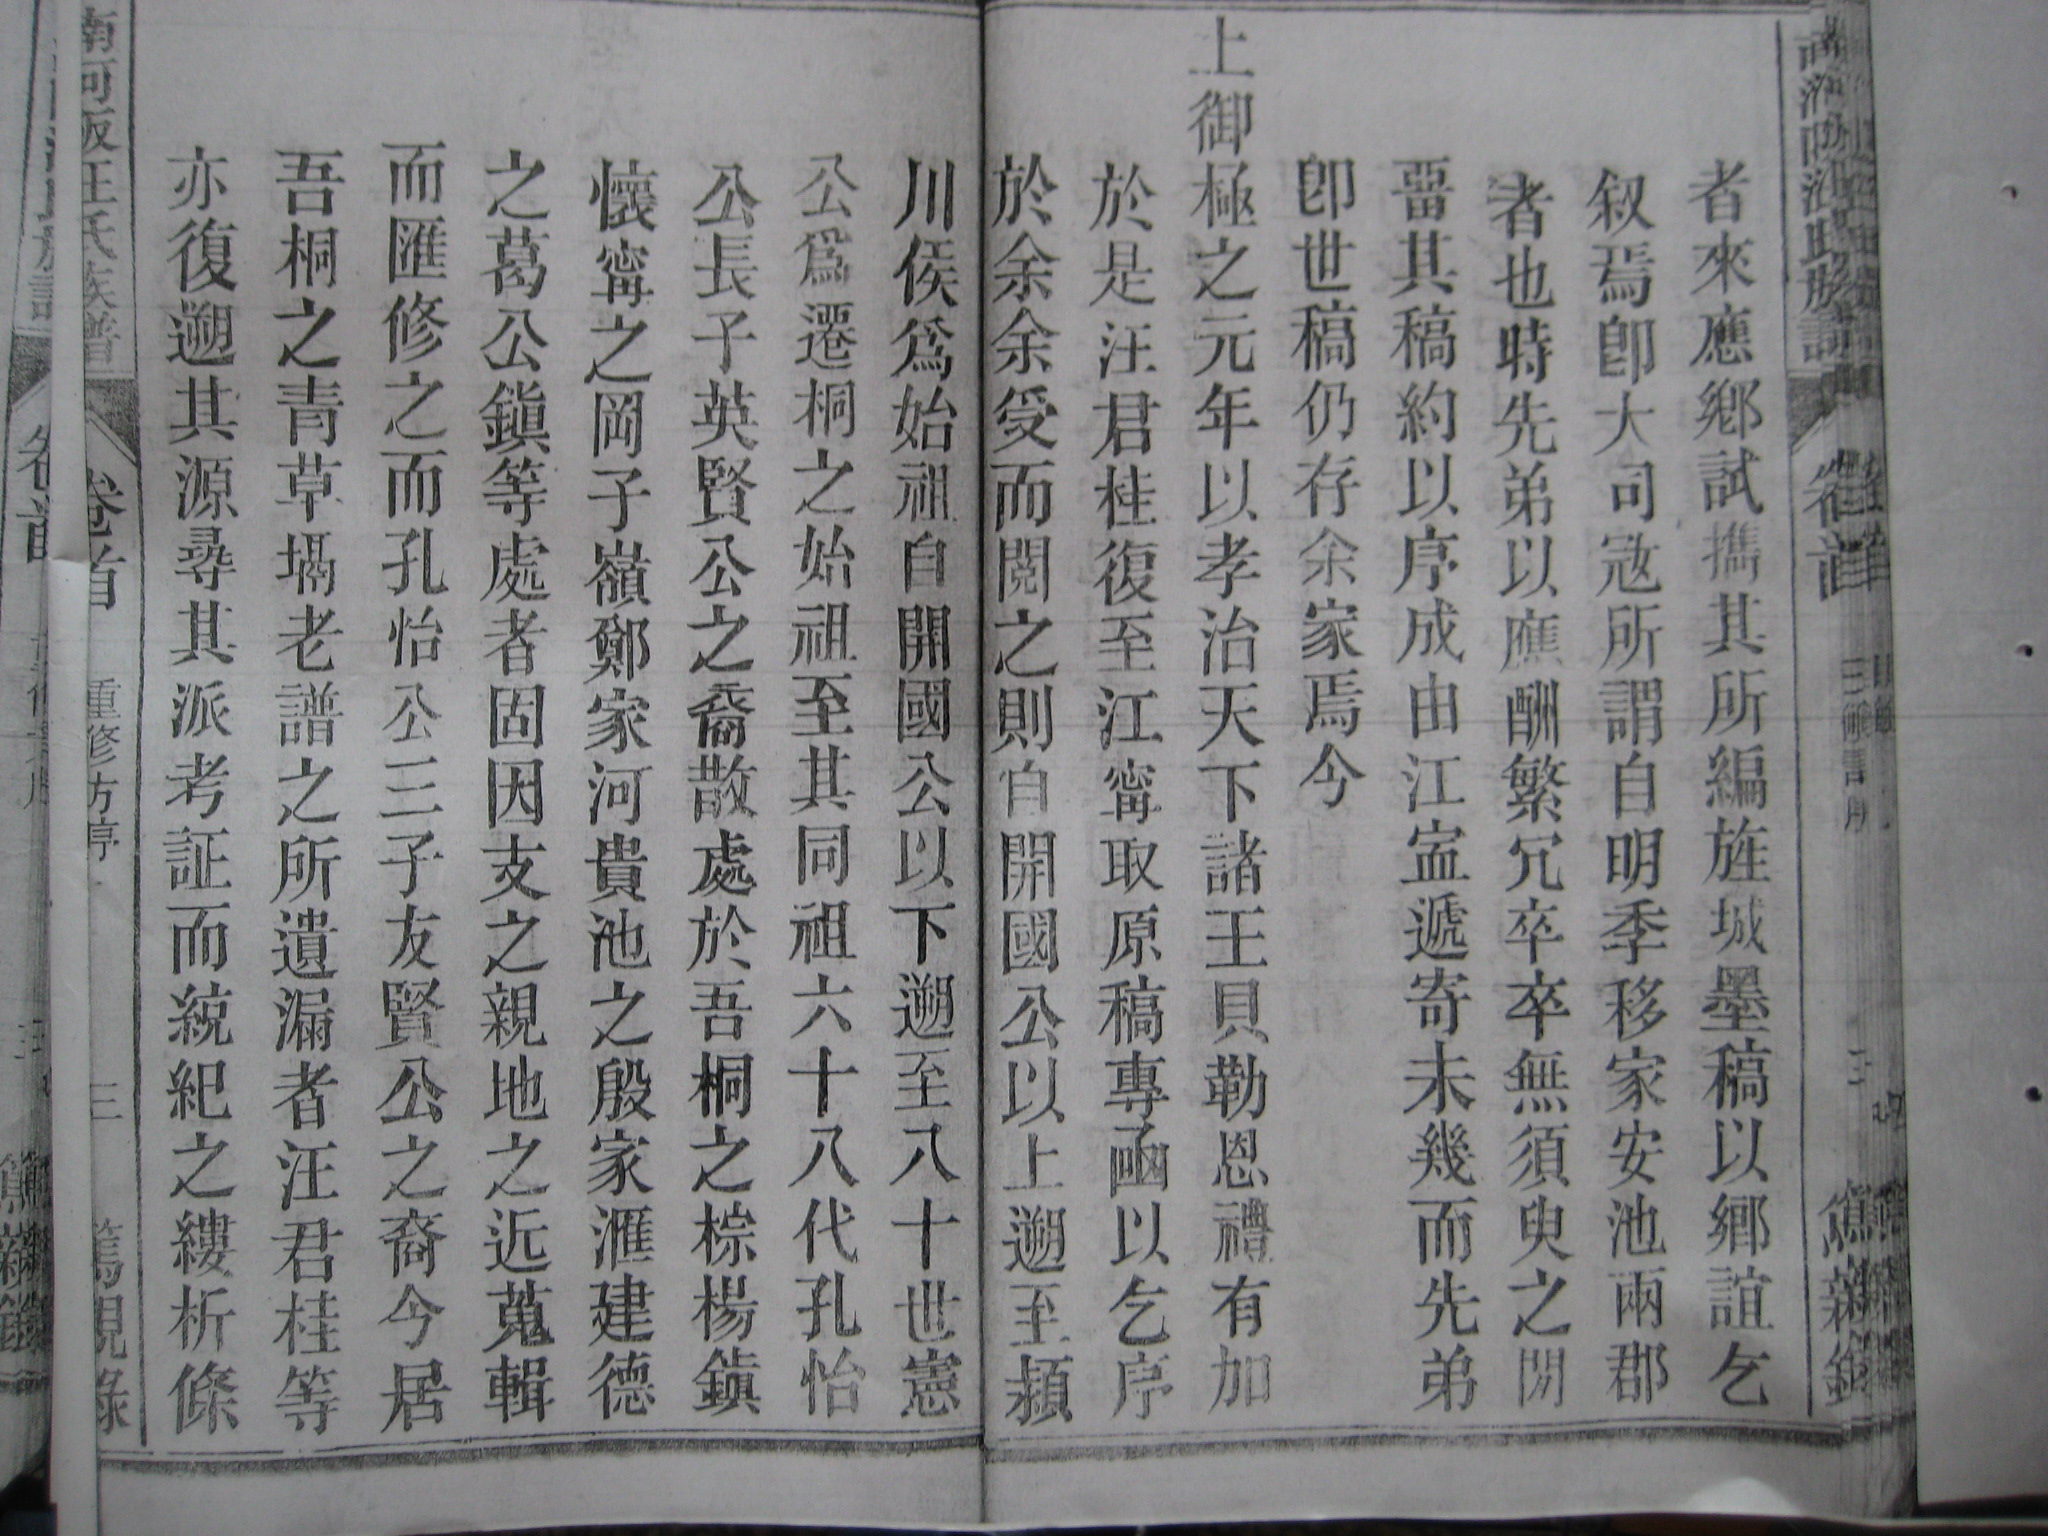 者來應鄉試攜其所編旌城墨稿以鄉誼乞
叙焉卽大司㓂所謂自明季移家安池兩郡
者也時先弟以應酬繁冗卒卒無須臾之閒
畱其稿約以序成由江寍遞寄未幾而先弟
卽世稿仍存余家焉今
上御極之元年以孝治天下諸王貝勒恩禮有加
於是汪君桂復至江甯取原稿專函以乞序
於余余受而閱之則自開國公以上遡至潁
川侯爲始祖自開國公以下遡至八十世憲
公爲遷桐之始祖至其同祖六十八代孔怡
公長子英賢公之裔散處於吾桐之棕楊鎭
懷甯之岡子嶺鄭家河貴池之殷家滙建德
之葛公鎭等處者固因支之親地之近蒐輯
而匯修之而孔怡公三子友賢公之裔今居
吾桐之青草塥老譜之所遺漏者汪君桂等
亦復遡其源尋其派考証而統紀之縷析條
南河阪汪氏族譜
卷首
重修方序
三
篤親錄